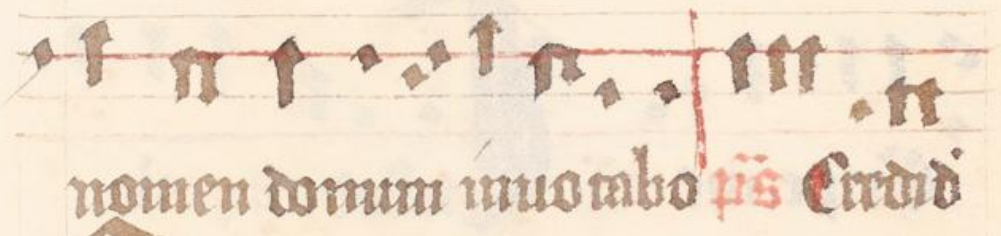 nomen domini invocabo ps Credidi